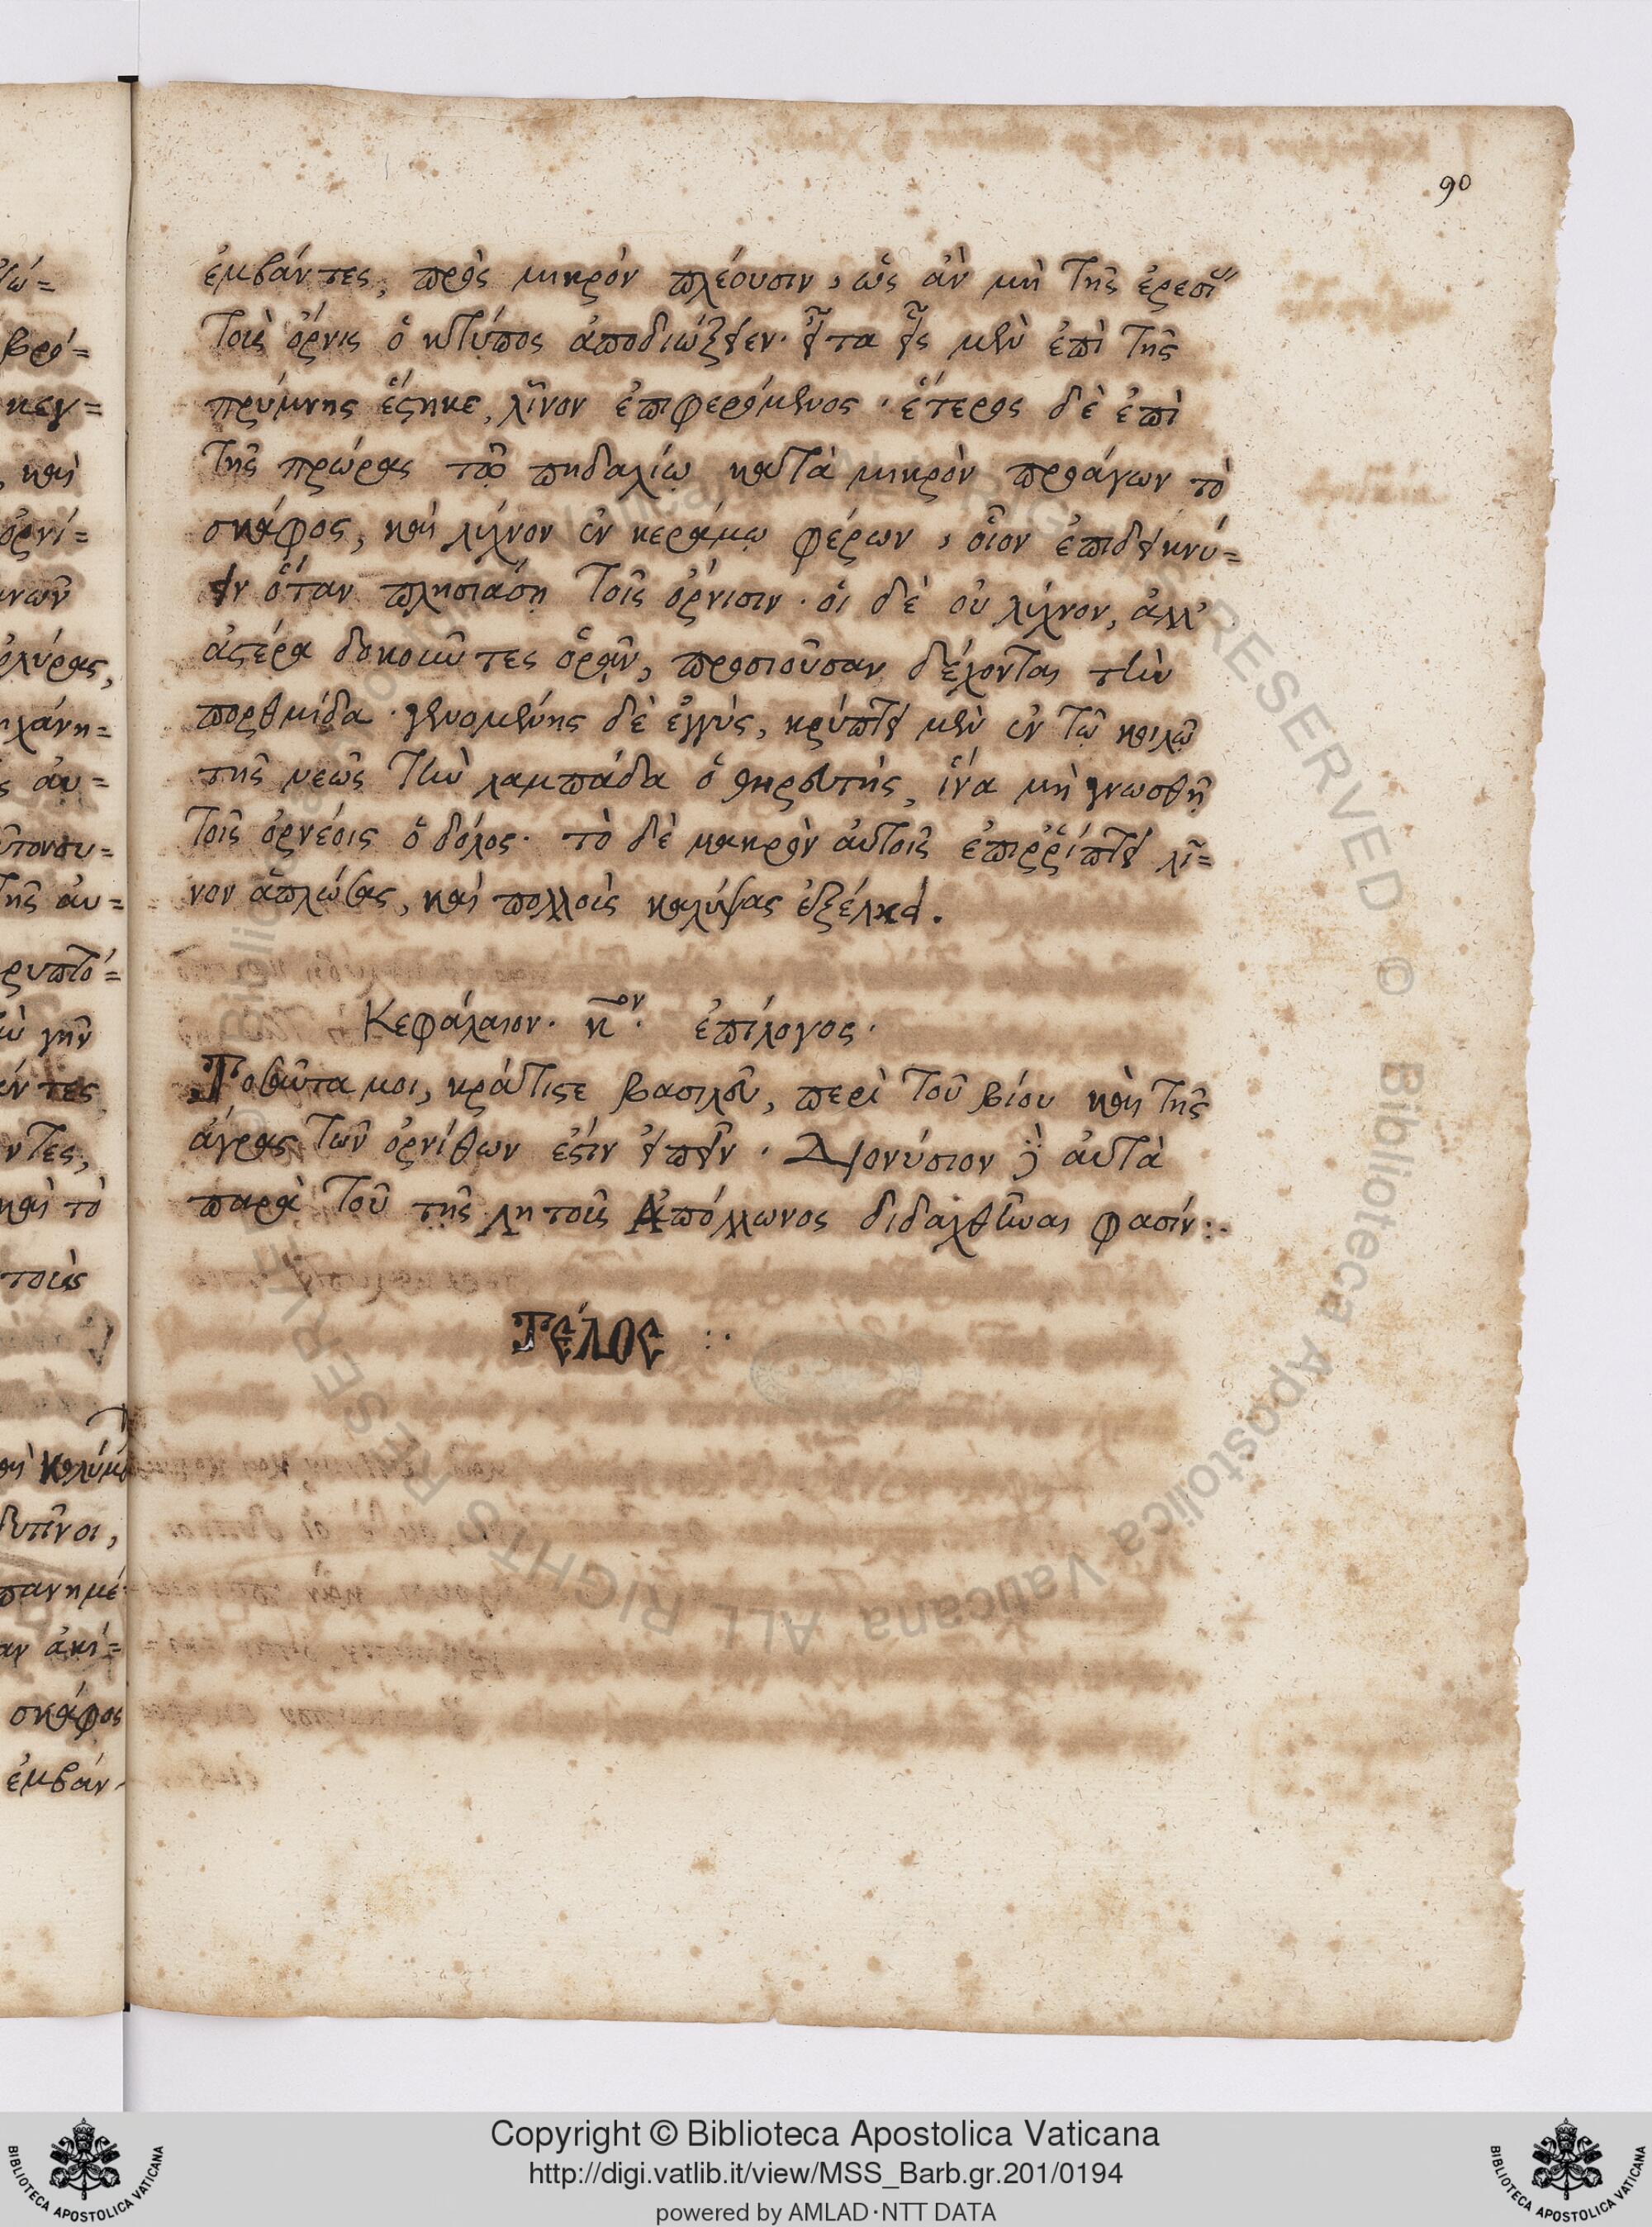 90
ἐμβάντες, πρὸς μικρὸν πλέουσιν, ὡς ἂν μὴ τῆς ἐρεσί
τοὺς ὄρνις ὁ κτύπος ἀποδιώξειεν· εἶτα εἷς μὲν ἐπὶ τῆς
πρύμνης ἕστηκε, λῖνον ἐπιφερόμενος· ἕτερος δὲ ἐπὶ
τῆς πρώρας τῷ πηδαλίῳ κατὰ μικρὸν προάγων τὸ
σκάφος, καὶ λύχνον ἐν κεράμῳ φέρων, οἷον ἐπιδεικνύ=
ειν ὅταν πλησιάσῃ τοῖς ὄρνισιν· οἱ δὲ οὐ λύχνον, ἀλλ'
ἀστέρα δοκοῦντες ὁρᾷν, προσιοῦσαν δέχονται τὴν
πορθμίδα· γενομένης δὲ ἐγγὺς, κρύπτει μὲν ἐν τῷ κοίλῳ
τῆς νεὼς τὴν λαμπάδα ὁ θηρευτής, ἵνα μὴ γνωσθῇ
τοῖς ὀρνέοις ὁ δόλος· τὸ δὲ μακρὸν αὐτοῖς ἐπιῤῥίπτει λῖ=
νον ἁπλώσας, καὶ πολλοὺς καλύψας ἐξέλκει.
Κεφάλαιον· κον· ἐπίλογος·
Τοσαῦτα μοι, κράτιστε βασιλεῦ, περὶ τοῦ βίου καὶ τῆς
ἄγρας τῶν ὀρνίθων ἐστὶν εἰπεῖν· Διονύσιον αὐτὰ
παρὰ τοῦ τῆς Λητοῦς Ἀπόλλωνος διδαχθῆναι φασίν:·
Τέλος :·
Copyright © Biblioteca Apostolica Vaticana
http://digi.vatlib.it/view/MSS_Barb.gr.201/0194
powered by AMLAD·NTT DATA
BIBLIOTECA APOSTOLICA VATICANA
BIBLIOTECA APOSTOLICA VATICANA